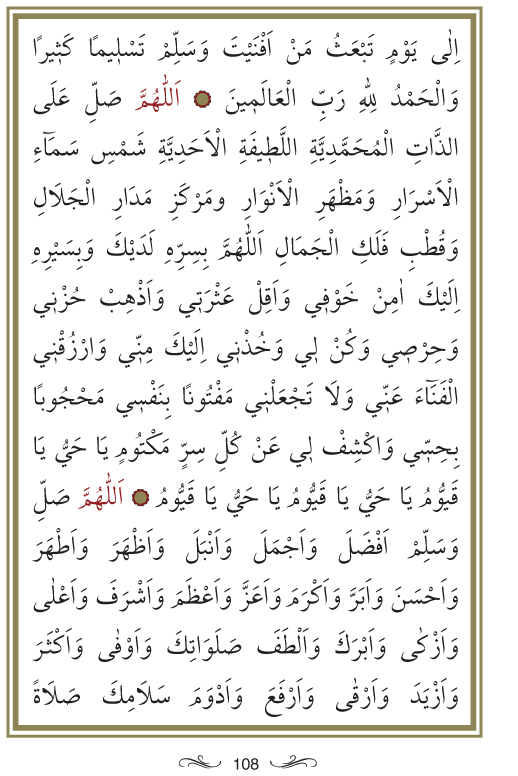 اِلٰى يَوْمٍ تَبْعَثُ مَنْ اَفْنَيْتَ وَسَلِّمْ تَسْلٖيمًا كَثٖيرًا
وَالْحَمْدُ لِلّٰهِ رَبِّ الْعَالَمٖينَ ۞ اَللّٰهُمَّ صَلِّ عَلَى
الذَّاتِ الْمُحَمَّدِيَّةِ اللَّطٖيفَةِ الْاَحَدِيَّةِ شَمْسِ سَمَٓاءِ
الْاَسْرَارِ وَمَظْهَرِ الْاَنْوَارِ ومَرْكَزِ مَدَارِ الْجَلَالِ
وَقُطْبِ فَلَكِ الْجَمَالِ اَللّٰهُمَّ بِسِرِّهٖ لَدَيْكَ وَبِسَيْرِهٖ
اِلَيْكَ اٰمِنْ خَوْفٖي وَاَقِلْ عَثْرَتٖي وَاَذْهِبْ حُزْنٖي
وَحِرْصٖي وَكُنْ لٖي وَخُذْنٖي اِلَيْكَ مِنّٖي وَارْزُقْنٖي
الْفَنَٓاءَ عَنّٖي وَلَا تَجْعَلْنٖي مَفْتُونًا بِنَفْسٖي مَحْجُوبًا
بِحِسّٖي وَاكْشِفْ لٖي عَنْ كُلِّ سِرٍّ مَكْتُومٍ يَا حَيُّ يَا
قَيُّومُ يَا حَيُّ يَا قَيُّومُ يَا حَيُّ يَا قَيُّومُ ۞ اَللّٰهُمَّ صَلِّ
وَسَلِّمْ اَفْضَلَ وَاَجْمَلَ وَاَنْبَلَ وَاَظْهَرَ وَاَطْهَرَ
وَاَحْسَنَ وَاَبَرَّ وَاَكْرَمَ وَاَعَزَّ وَاَعْظَمَ وَاَشْرَفَ وَاَعْلٰى
وَاَزْكٰى وَاَبْرَكَ وَاَلْطَفَ صَلَوَاتِكَ وَاَوْفٰى وَاَكْثَرَ
وَاَزْيَدَ وَاَرْقٰى وَاَرْفَعَ وَاَدْوَمَ سَلَامِكَ صَلَاةً
108